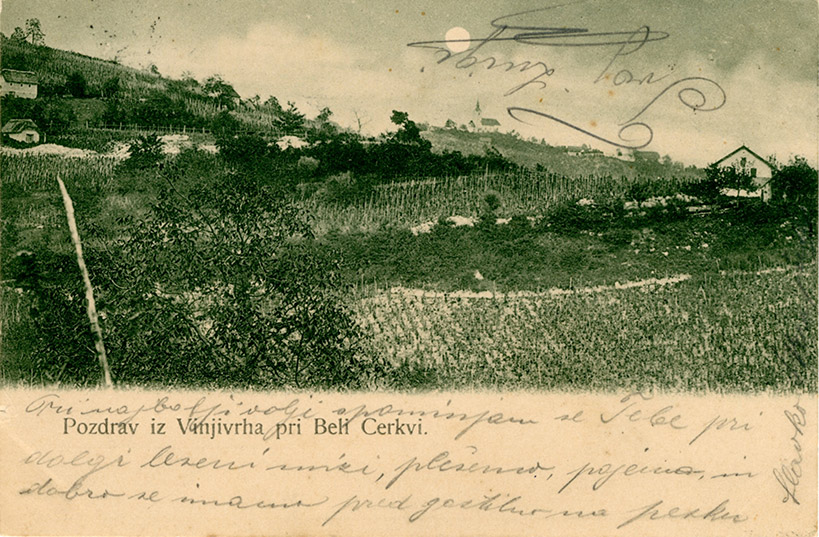 Pri najbolji volji spominjam se Tebe pri
Pozdrav iz Vinjivrha pri Beli Cerkvi.
dolgi leseni mizi, plešemo, pojemo, in
dobro se imamo pred gostilno na pesku
Slavko